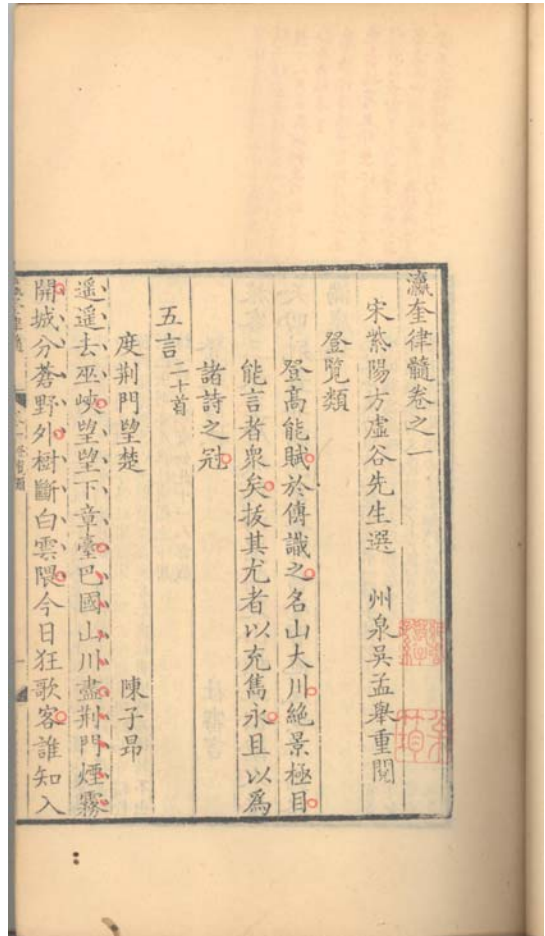 瀛奎律髓卷之一
宋紫陽方虛谷先生選　州泉吳孟舉重閱
登覽類
登高能賦於傳識之名山大川絶景極目
能言者衆矣拔其尤者以充雋永且以爲
諸詩之冠
五言二十首
度荆門望楚　陳子昂
遥遥去巫峽望望下章臺巴國山川盡荆門煙霧
開城分蒼野外樹斷白雲隈今日狂歌客誰知入